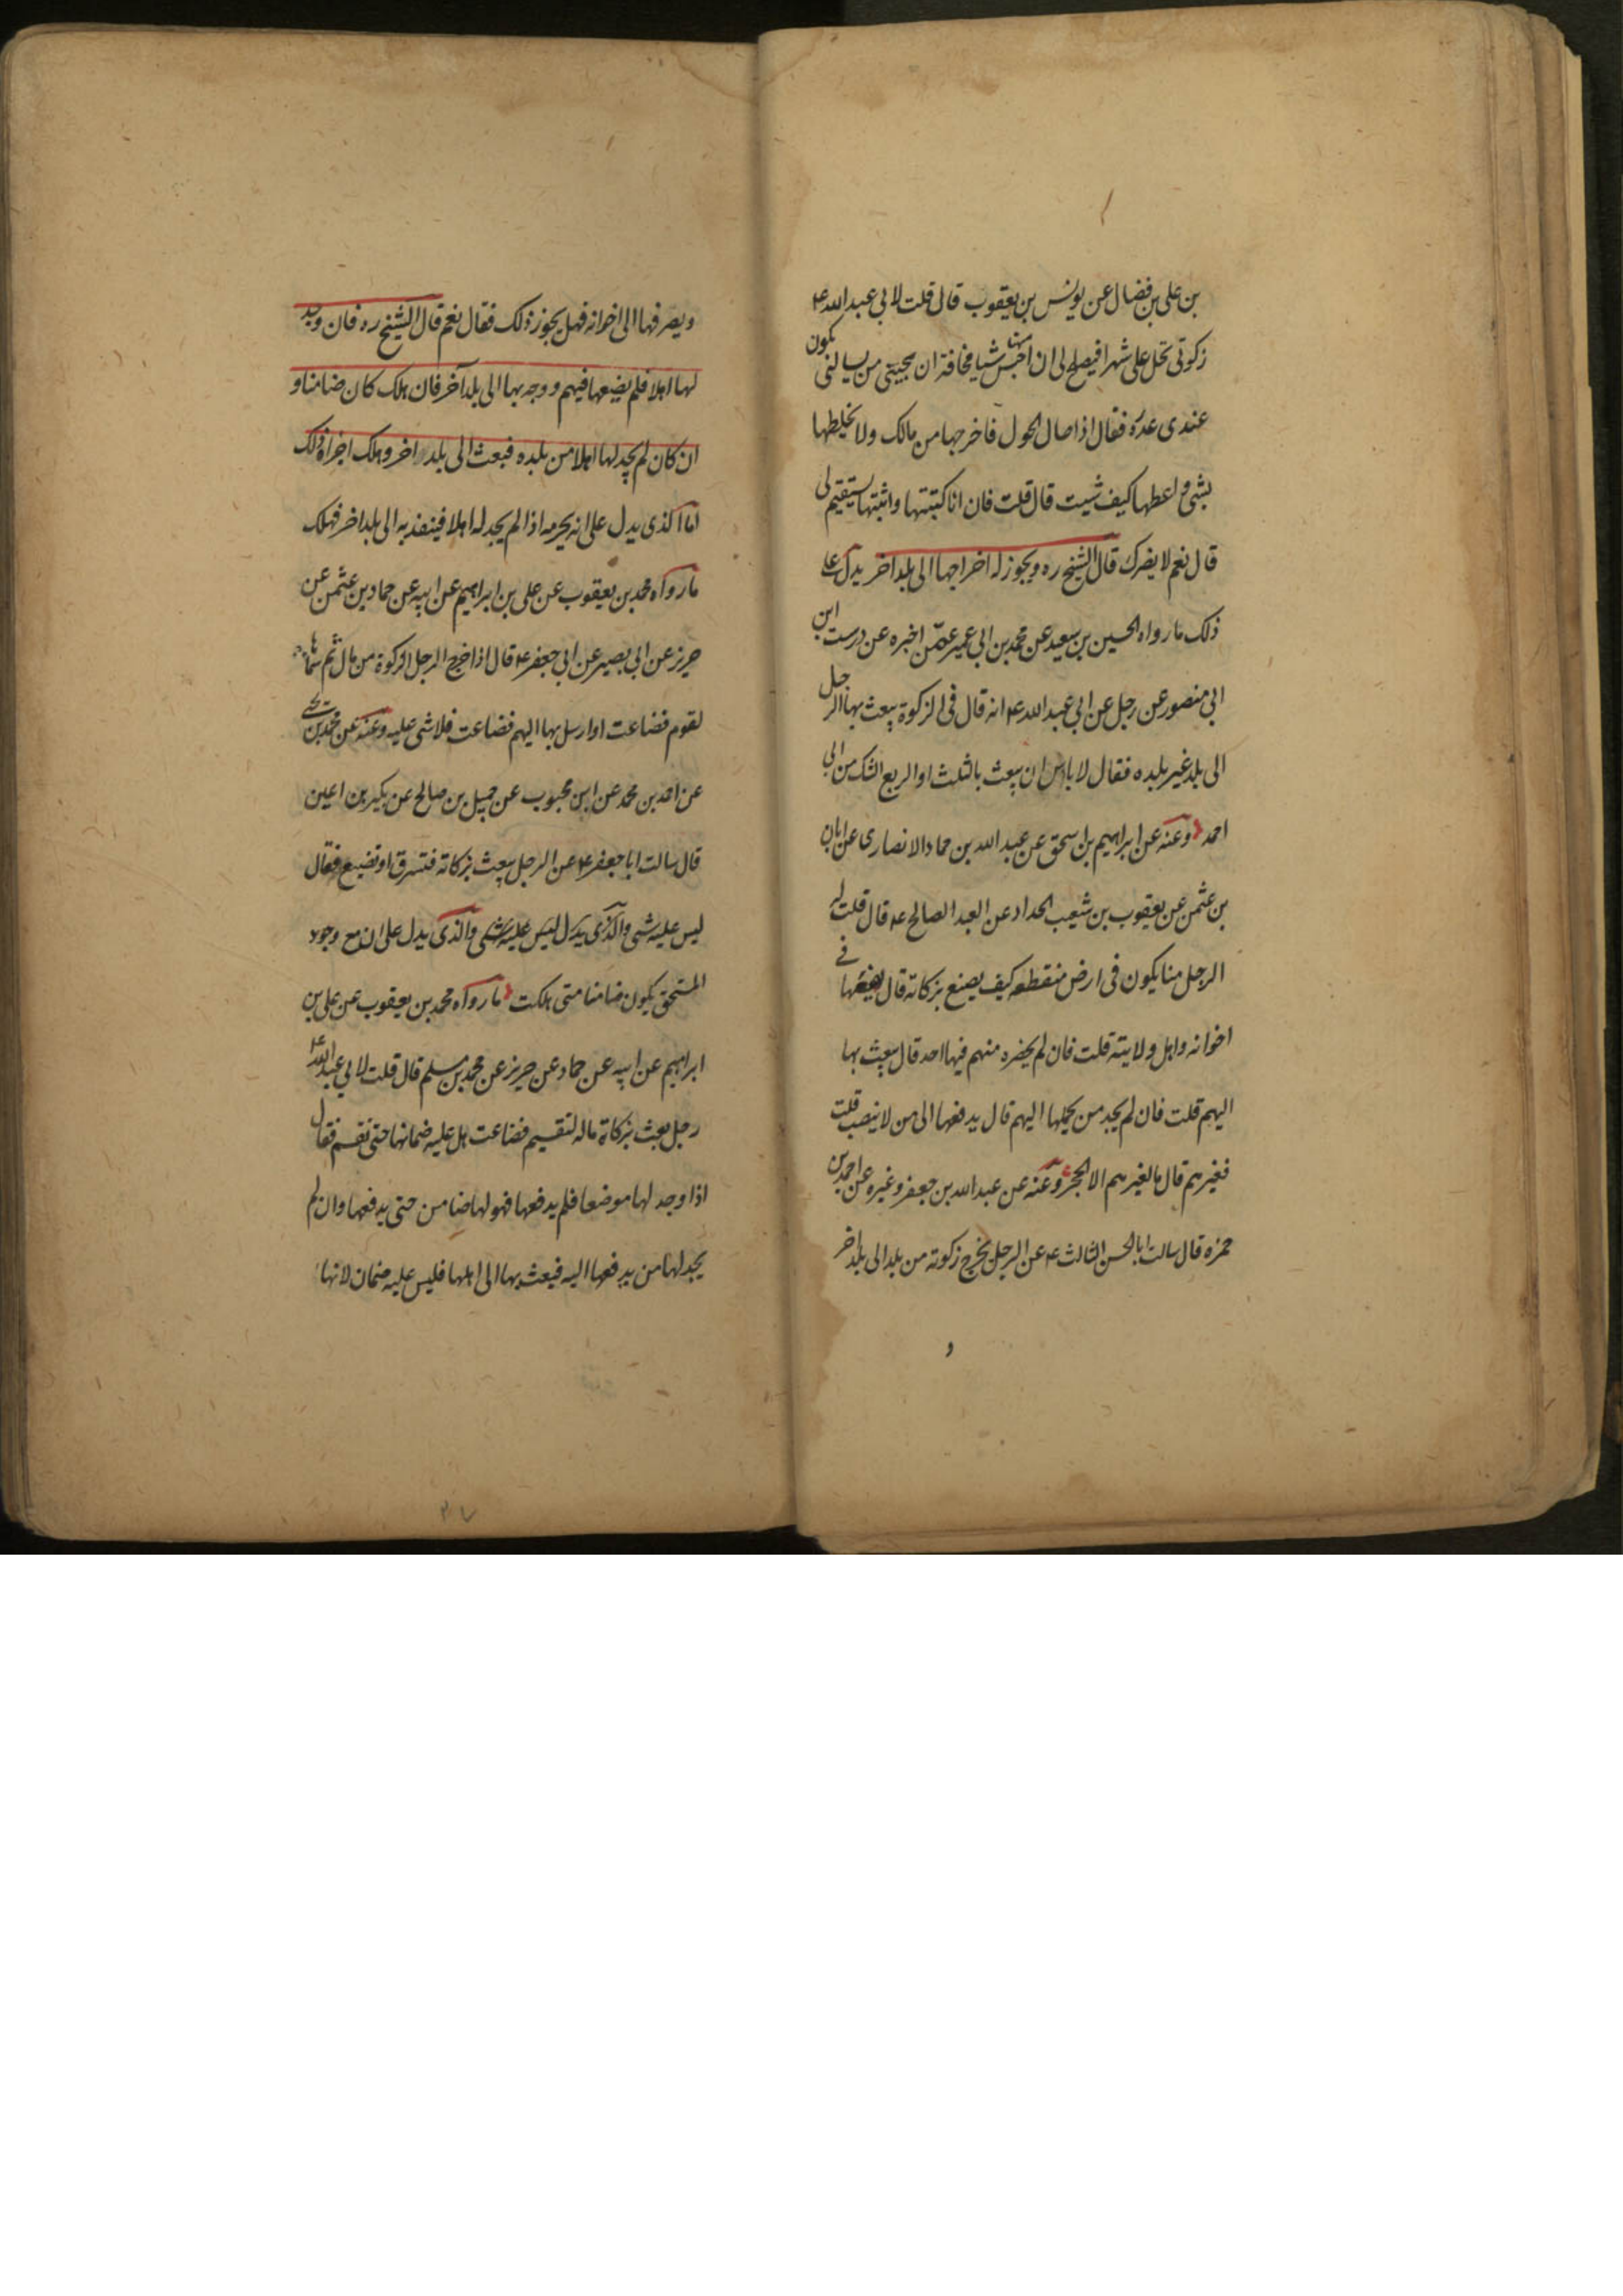 بن علی بن فضال عن یونس بن یعقوب قال قلت لابی عبد الله ع
زکوتی تحل علی شهر افیصلح لی ان احبس منها شیا مخافة ان یجیئنی من یسالنی یکون
عندی عدة فقال اذا حال الحول فاخرجها من مالک ولا تخلطها
بشئ واعطها کیف شیت قال قلت فان انا کتبتها واثبتها یستقیم لی
قال نعم لا یضرک قال الشیخ ره ویجوز له اخراجها الی بلد اخر یدل علی
ذلک ما رواه الحسین بن سعید عن محمد بن ابی عمیر عمّن اخبره عن درست ابن
ابی منصور عن رجل عن ابی عبد الله ع انه قال فی الزکوة یبعث بها الرجل
الی بلد غیر بلده فقال لا باس ان یبعث بالثلث او الربع الشک من ابی
احمد وعنه عن ابراهیم بن اسحق عن عبد الله بن حماد الانصاری عن ابان
بن عثمن عن یعقوب بن شعیب الحداد عن العبد الصالح ع قال قلت له
الرجل منا یکون فی ارض منقطعه کیف یصنع بزکاته قال یضعها فی
اخوانه واهل ولایته قلت فان لم یحضره منهم فیها احد قال یبعث بها
الیهم قلت فان لم یجد من یحملها الیهم قال یدفعها الی من لا ینصب قلت
فغیرهم قال ما لغیرهم الا الحجر وعنه عن عبد الله بن جعفر وغیره عن احمد بن
حمزه قال سالت ابا الحسن الثالث ع عن الرجل یخرج زکوته من بلد الی بلد اخر
و
ویصرفها الی اخوانه فهل یجوز ذلک فقال نعم قال الشیخ ره فان وجد
لها اهلا فلم یضعها فیهم ووجه بها الی بلد آخر فان هلک کان ضامنا و
ان کان لم یجد لها اهلا من بلده فبعث الی بلد اخر وهلک اجزاه ذلک
اما الذی یدل علی انه یحرمه اذا لم یجد له اهلا فینفذ به الی بلد اخر فهلک
ما رواه محمد بن یعقوب عن علی بن ابراهیم عن ابیه عن حماد بن عثمن عن
حریز عن ابی بصیر عن ابی جعفر ع قال اذا اخرج الرجل الزکوة من مال ثم سماها
لقوم فضاعت او ارسل بها الیهم فضاعت فلا شی علیه وعنه عن محمد بن یحیی
عن احمد بن محمد عن ابن محبوب عن جمیل بن صالح عن بکیر بن اعین
قال سالت ابا جعفر ع عن الرجل یبعث بزکاته فتسرق او تضیع فقال
لیس علیه شی والذی یدل لیس علیه شی والذی یدل علی ان مع وجود
المستحق یکون ضامنا متی هلکت ما رواه محمد بن یعقوب عن علی بن
ابراهیم عن ابیه عن حماد عن حریز عن محمد بن مسلم قال قلت لابی عبد الله ع
رجل بعث بزکاة ماله لتقسیم فضاعت هل علیه ضمانها حتی تقسم فقال
اذا وجد لها موضعا فلم یدفعها فهو لها ضامن حتی یدفعها وان لم
یجد لها من یدفعها الیه فبعث بها الی اهلها فلیس علیه ضمان لانها